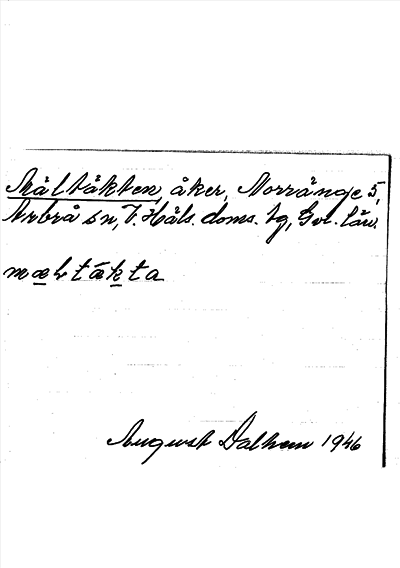 Mältäkten, åker, Norränge 5,
Arbrå sn, V. Häls. doms. tg, Gvl. län.
mæltäkta
August Dalhem 1946